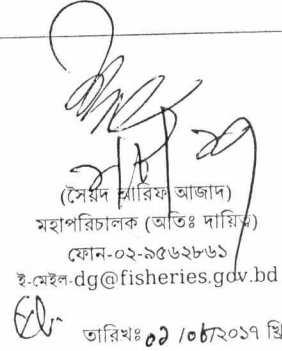 (সৈয়দ আরিফ আজাদ)
মহাপরিচালক (অতিঃ দায়িত্ব)
ফোন-০২-৯৫৬২৮৬১
ই-মেইল-dg@fisheries.gov.bd
তারিখঃ ০১/০৮/২০১৭ খ্রি